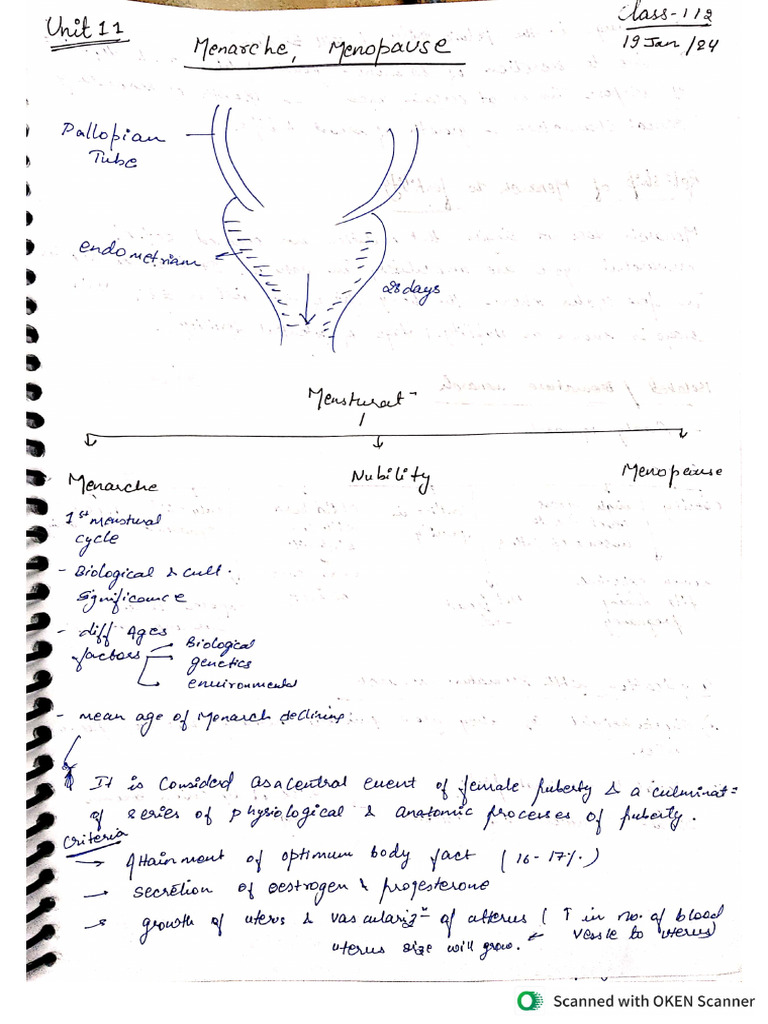 Unit 11
Class-112
19 Jan/24
Menarche, Menopause
Pallopian
Tube
endometriam
28 days
Mensturat-
Menarche
Nubility
Menopause
1st menstural
cycle
- Biological & cult.
significance
- diff Ages
factors
Biological
genetics
environmental
- mean age of Monarch declining.
It is considerd as a central event of female puberty & a culminat=
of series of physiological & anatomic processes of puberty.
Criteria
→ Attainment of optimum body fact (16-17%.)
→ secretion of oestrogen & progesterone
→ growth of uterus & vasculariz= of utterus (↑ in no. of blood
vessle to uterus)
uterus size will grow. ←
Scanned with OKEN Scanner